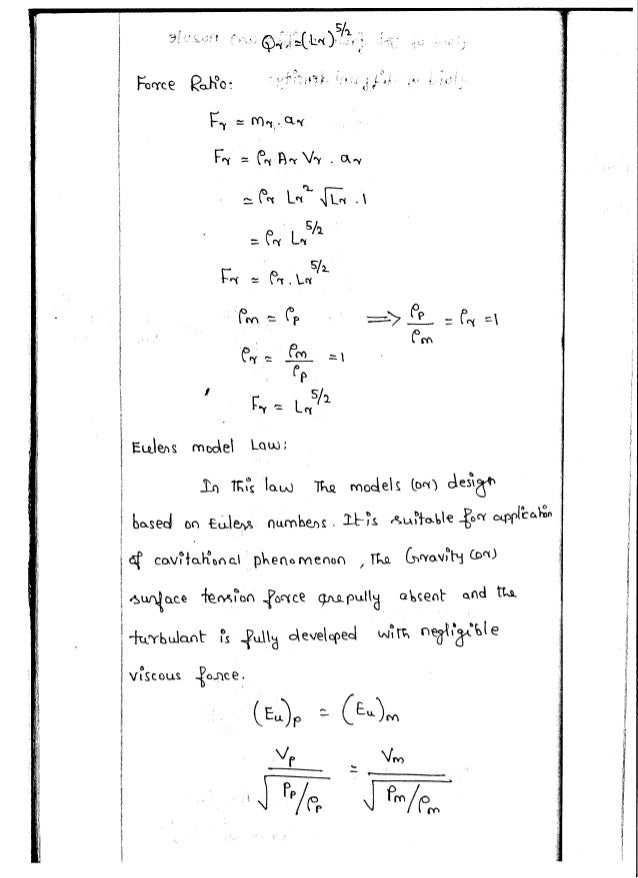 Qr = (Lr)^5/2
Force Ratio:
Fr = mr . ar
Fr = ρr Ar Vr . ar
= ρr Lr^2 √Lr . 1
= ρr Lr^5/2
Fr = ρr . Lr^5/2
ρm = ρp ⟹ ρp/ρm = ρr = 1
ρr = ρm/ρp = 1
Fr = Lr^5/2
Eulers model Law:
In This law The models (or) design
based on Eulers numbers. It is suitable for application
of cavitational phenomenon, The Gravity (or)
surface tension force are pully absent and the
turbulant is fully developed with negligible
viscous force.
(Eu)p = (Eu)m
Vp/√Pp/ρp = Vm/√Pm/ρm